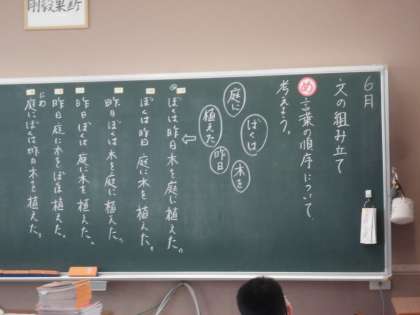 剛毅果断
6月
文の組み立て
め 言葉の順序について、
考えよう。
庭に
ぼくは
木を
植えた
昨日
ぼくは昨日木を庭に植えた。
ぼくは昨日庭に木を植えた。
昨日ぼくは木を庭に植えた。
昨日ぼくは庭に木を植えた。
昨日庭に木をぼくは植えた。
にわ
庭にぼくは昨日木を植えた。